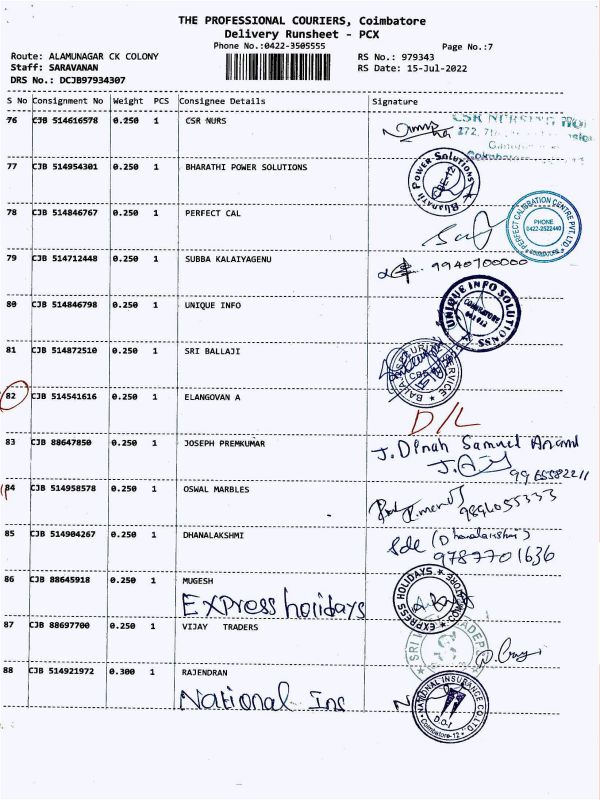 THE PROFESSIONAL COURIERS, Coimbatore
Delivery Runsheet - PCX
Phone No.:0422-3505555
Page No.:7
Route: ALAMUNAGAR CK COLONY
RS No.: 979343
Staff: SARAVANAN
RS Date: 15-Jul-2022
DRS No.: DCJB97934307
S No Consignment No Weight PCS Consignee Details Signature
76 CJB 514616578 0.250 1 CSR NURS
CSR NURSING HO
77 CJB 514954301 0.250 1 BHARATHI POWER SOLUTIONS
Bharath Power Solutions CBE-12
78 CJB 514846767 0.250 1 PERFECT CAL
PERFECT CALIBRATION CENTRE PVT. LTD.
PHONE
0422-2522440
COIMBATORE
79 CJB 514712448 0.250 1 SUBBA KALAIYAGENU
9940700000
80 CJB 514846798 0.250 1 UNIQUE INFO
UNIQUE INFO SOLUTIONSS
COIMBATORE
641 012
81 CJB 514872510 0.250 1 SRI BALLAJI
BALAJI SECURITY SERVICE
82 CJB 514541616 0.250 1 ELANGOVAN A
D/L
83 CJB 88647850 0.250 1 JOSEPH PREMKUMAR
J. Dinah Samuel Anand
9965582211
84 CJB 514958578 0.250 1 OSWAL MARBLES
9894055333
85 CJB 514904267 0.250 1 DHANALAKSHMI
Sde (Dhanalakshmi)
9787701636
86 CJB 88645918 0.250 1 MUGESH
Express holidays
EXPRESS HOLIDAYS COIMBATORE
87 CJB 88697700 0.250 1 VIJAY TRADERS
SRI
88 CJB 514921972 0.300 1 RAJENDRAN
National Ins
NATIONAL INSURANCE CO. LTD.
D.O.I
Coimbatore-12